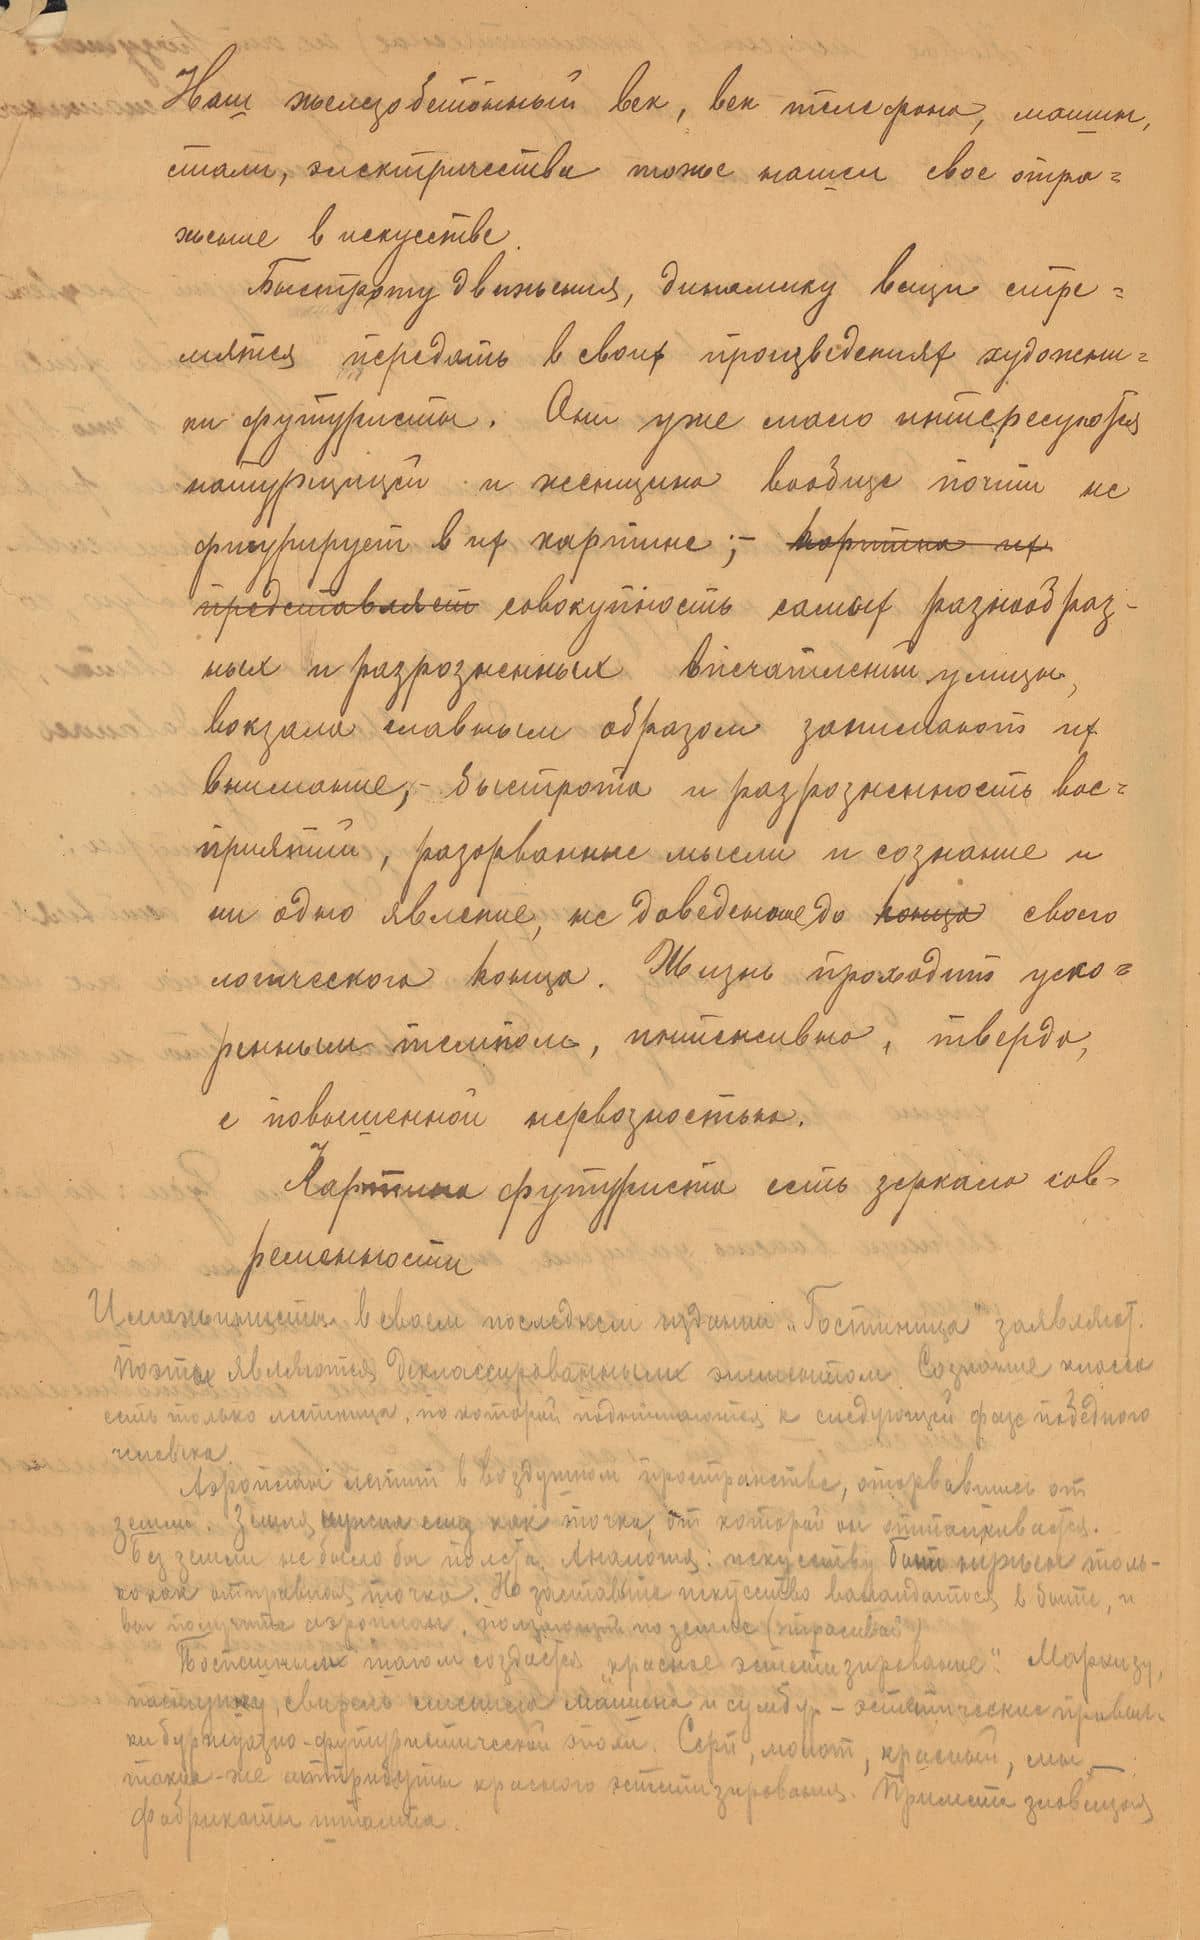 Наш железобетонный век, век телефона, машин,
стали, электричества тоже нашел свое отра=
жение в искусстве.
Быстроту движения, динамику вещи стре=
мятся передать в своих произведениях художни=
ки футуристы. Они уже мало интересуются
натурщицей и женщина вообще почти не
фигурирует в их картине;- картина их
представляет совокупность самых разнообраз-
ных и разрозненных впечатлений улицы,
вокзала главным образом занимают их
внимание,- быстрота и разрозненность вос=
приятий, разорванные мысли и сознание и
ни одно явление, не доведенное до конца своего
логического конца. Жизнь проходит уско=
ренным темпом, интенсивно, твердо,
с повышенной нервозностью.
Картина футуриста есть зеркало сов-
ременности
Имажинисты в своем последнем издании „Гостиница" заявляют.
Поэты являются деклассированным элементом. Сознание класса
есть только лестница, по которой поднимаются к следующей фазе победного
человека.
Аэроплан летит в воздушном пространстве, оторвавшись от
земли. Земля нужна ему как точка, от которой он отталкивается.
Без земли не было бы полета. Аналогия: искусству быт нужен толь-
ко как отправная точка. Но заставьте искусство валандаться в быте, и
вы получите аэроплан, ползающий по земле (                )
Поспешным шагом создается „красное эстетизирование". Маркизу,
пастушку, свирель сменила машина и сумбур - эстетические привыч-
ки буржуазно-футуристической эпохи. Серп, молот, красный, мы -
такие-же аттрибуты красного эстетизирования. Примета зловещая
фабрикаты штампа.